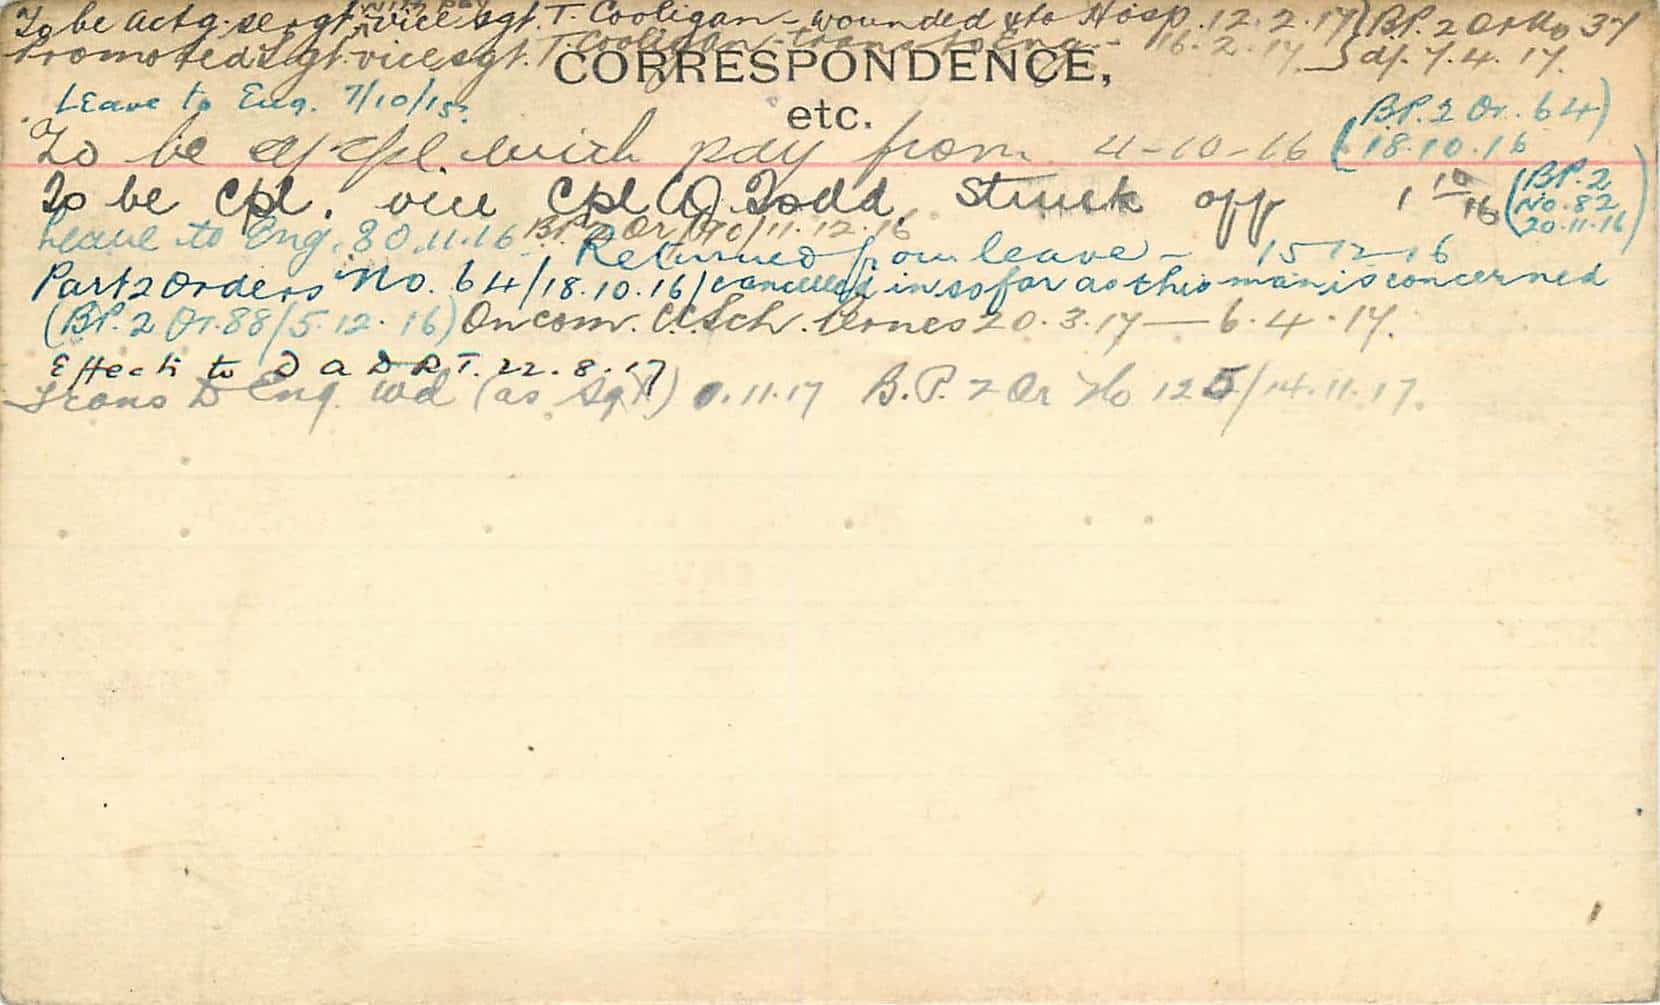 with pay
To be actg. sergt. ^ vice sgt. T. Cooligan - wounded & to Hosp. 12.2.17 } BP. 2 Or No 37
Promoted Sgt. vice sgt. T. Cooligan - trans. to Eng. - 16.2.17. } d/. 7.4.17.
CORRESPONDENCE,
Leave to Eng. 7/10/15.
etc.
To be a/cpl. with pay from 4-10-16 (BP. 2 Or. 64)
18.10.16
To be Cpl. vice Cpl Todd. Struck off 1 10/16 (BP. 2
No. 82
20.11.16)
Leave to Eng. 30.11.16 BP 2 Or 11.12.16
Returned from leave - 15-12-16
Part 2 Orders No. 64/18.10.16/cancelled in so far as this man is concerned
(BP. 2 Or. 88/5.12.16) On com. Sch. 20.3.17 — 6.4.17.
Effects to D A D R T. 22.8.17
Trans to Eng wd (as Sgt) .11.17 B.P. 2 Or No 125/14.11.17.